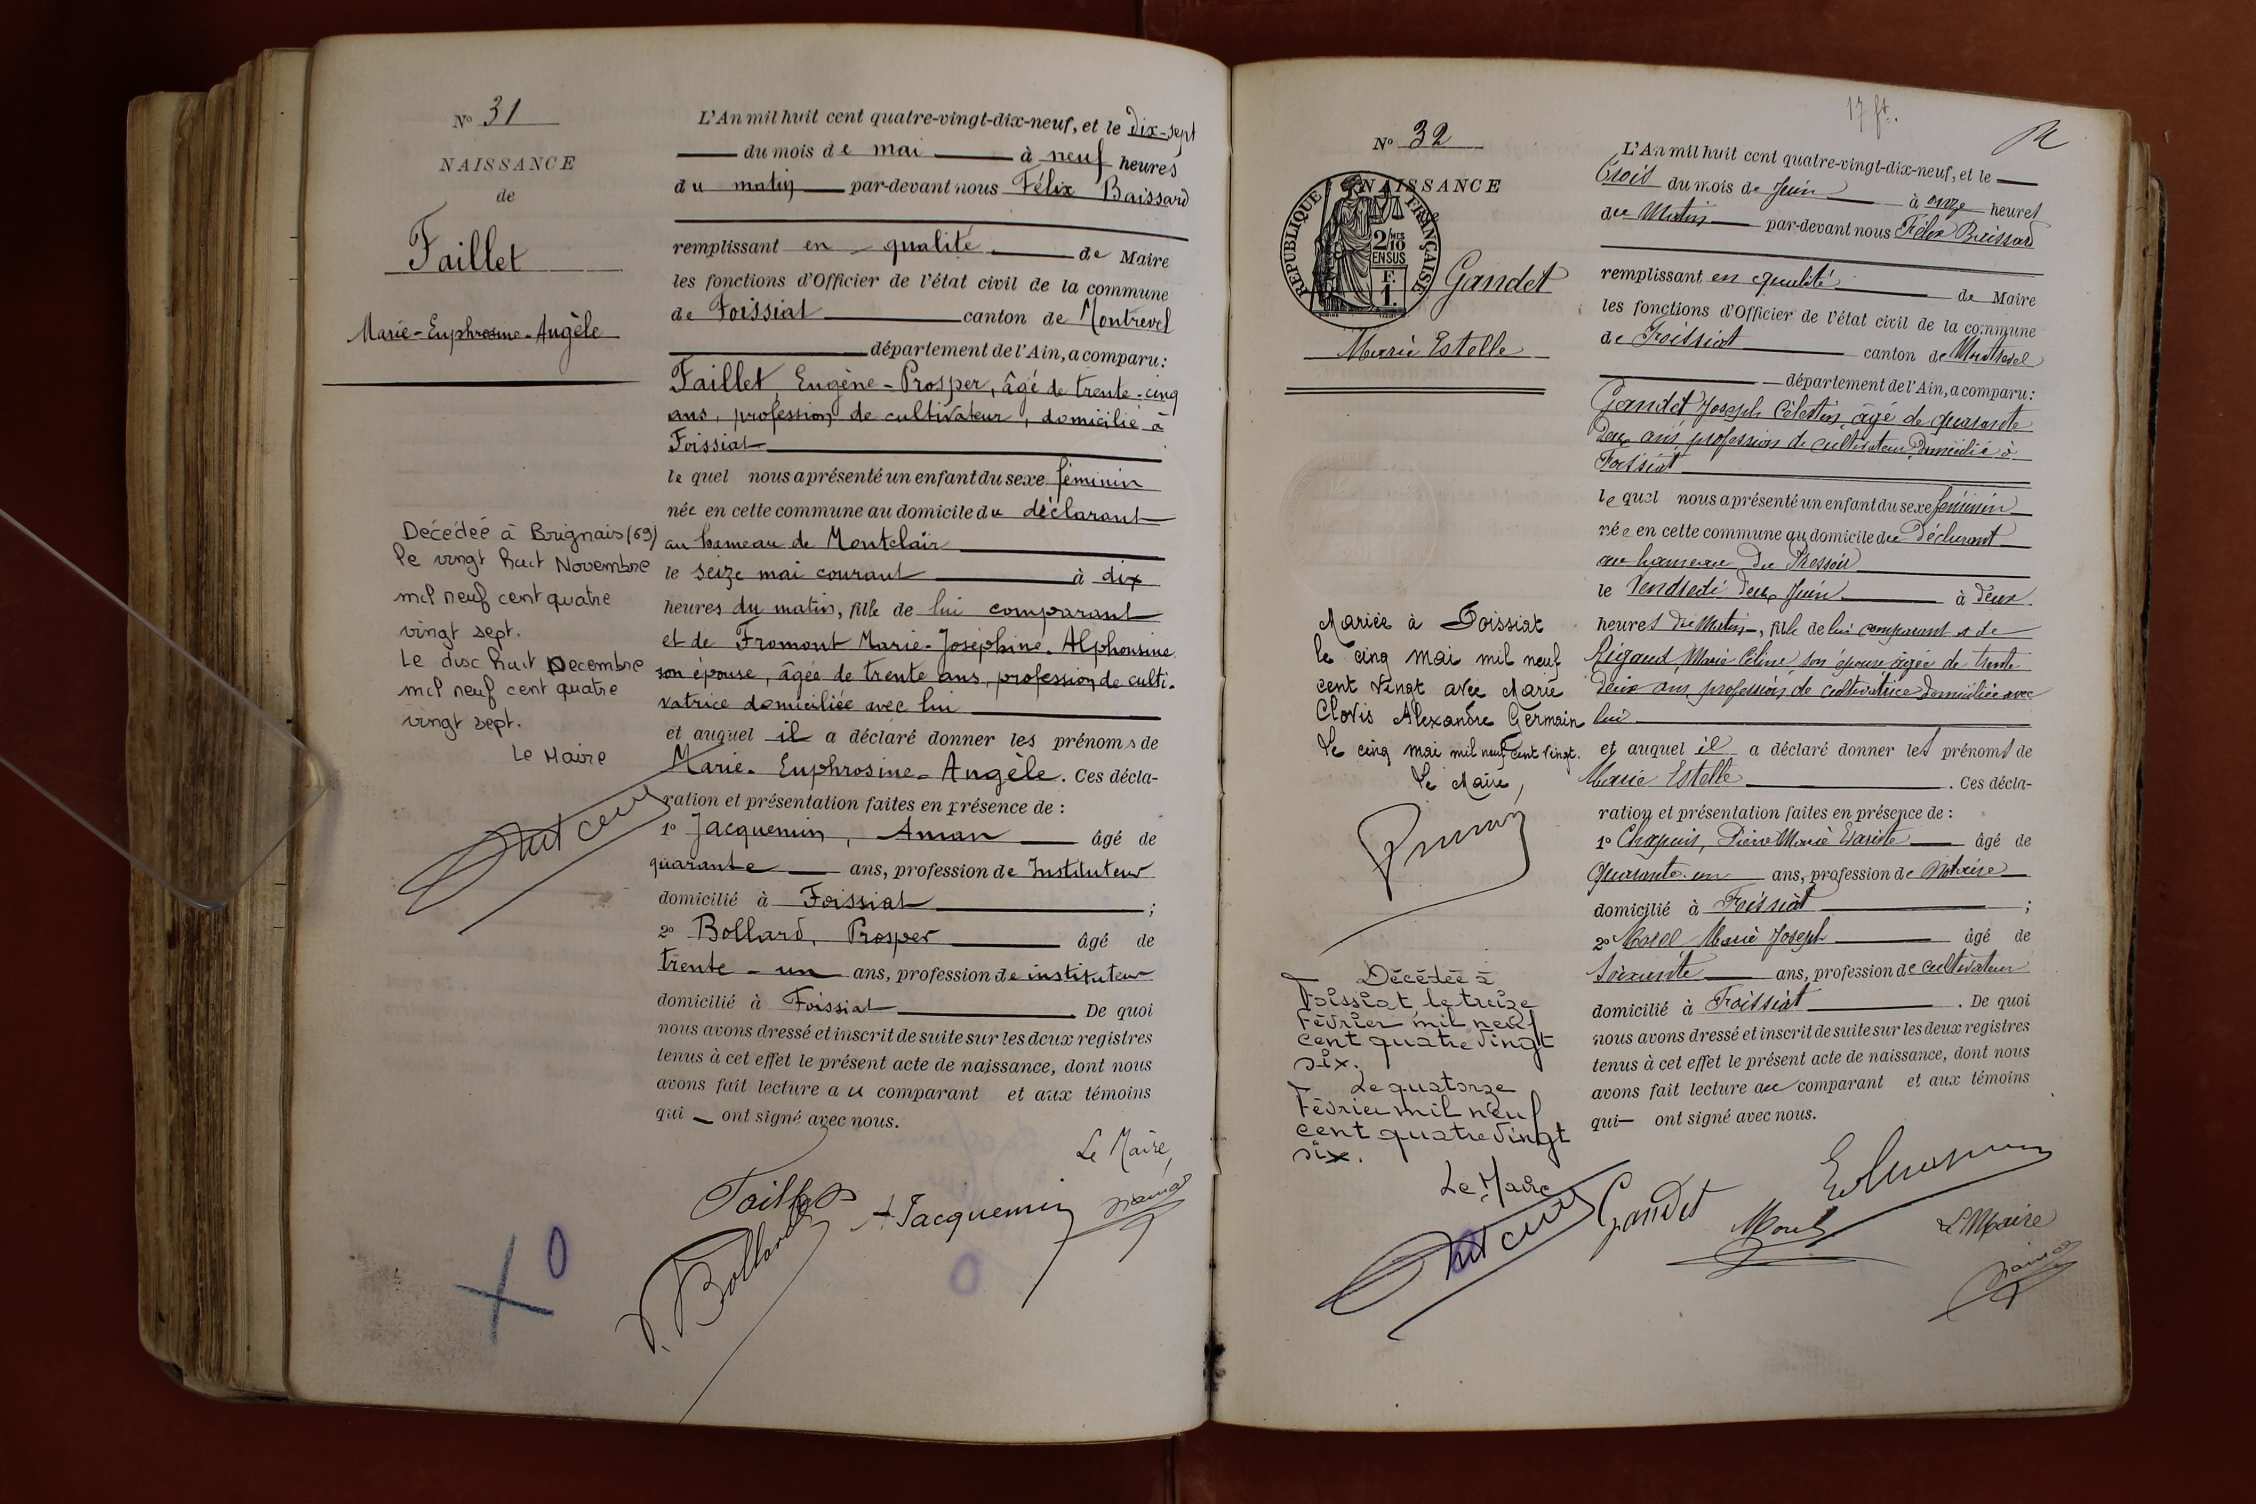 N° 31
NAISSANCE
de
Faillet
Marie-Euphrosine-Angèle
Décédée à Brignais (69)
le vingt huit Novembre
mil neuf cent quatre
vingt sept.
Le disc huit Decembre
mil neuf cent quatre
vingt sept.
Le Maire
L'An mil huit cent quatre-vingt-dix-neuf, et le dix-sept
du mois de mai à neuf heures
du matin par-devant nous Félix Baissard
remplissant en qualité de Maire
les fonctions d'Officier de l'état civil de la commune
de Foissiat canton de Montrevel
département de l'Ain, a comparu :
Faillet Eugène-Prosper, âgé de trente-cinq
ans, profession de cultivateur, domicilié à
Foissiat
le quel nous a présenté un enfant du sexe féminin
née en cette commune au domicile du déclarant
au hameau de Montclair
le seize mai courant à dix
heures du matin, fille de lui comparant
et de Fromont Marie-Joséphine-Alphonsine
son épouse, âgée de trente ans, profession de culti-
vatrice domiciliée avec lui
et auquel il a déclaré donner les prénoms de
Marie-Euphrosine-Angèle. Ces décla-
ration et présentation faites en présence de :
1° Jacquemin, Aman âgé de
quarante ans, profession de Instituteur
domicilié à Foissiat ;
2° Bollard, Prosper âgé de
trente-un ans, profession de instituteur
domicilié à Foissiat. De quoi
nous avons dressé et inscrit de suite sur les deux registres
tenus à cet effet le présent acte de naissance, dont nous
avons fait lecture au comparant et aux témoins
qui ont signé avec nous.
Le Maire,
Faillet A Jacquemin
P. Bollard
0
0
17 ft.
N° 32
NAISSANCE
RÉPUBLIQUE FRANÇAISE
2/10 MES
EN SUS
F.
1.
Gandet
Marie Estelle
Mariée à Foissiat
le cinq mai mil neuf
cent vingt avec Marie
Clovis Alexandre Germain
Le cinq mai mil neuf cent vingt.
Le Maire,
Décédée à
Foissiat le treize
Février mil neuf
cent quatre vingt
six.
Le quatorze
Février mil neuf
cent quatre vingt
six.
Le Maire
L'An mil huit cent quatre-vingt-dix-neuf, et le
trois du mois de Juin à onze heures
du Matin par-devant nous Félix Baissard
remplissant en qualité de Maire
les fonctions d'Officier de l'état civil de la commune
de Foissiat canton de Montrevel
département de l'Ain, a comparu :
Gandet Joseph Célestin, âgé de quarante
deux ans, profession de cultivateur, domicilié à
Foissiat
le quel nous a présenté un enfant du sexe féminin
née en cette commune au domicile du Déclarant
au hameau du Pressoir
le Vendredi deux Juin à deux
heures du Matin, fille de lui comparant et de
Rigaud, Marie Céline son épouse âgée de trente
deux ans, profession de cultivatrice domiciliée avec
lui
et auquel il a déclaré donner les prénoms de
Marie Estelle. Ces décla-
ration et présentation faites en présence de :
1° Chapuis, Pierre Marie Evariste âgé de
Quarante-un ans, profession de Notaire
domicilié à Foissiat ;
2° Morel Marie Joseph âgé de
soixante ans, profession de cultivateur
domicilié à Foissiat. De quoi
nous avons dressé et inscrit de suite sur les deux registres
tenus à cet effet le présent acte de naissance, dont nous
avons fait lecture au comparant et aux témoins
qui ont signé avec nous.
Gandet Morel
Le Maire